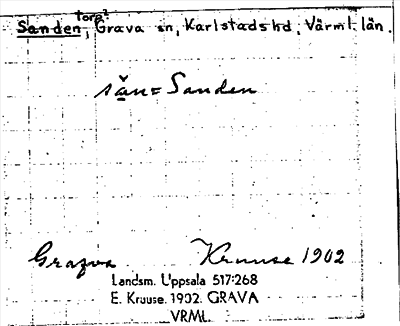 Sanden, torp? Grava sn, Karlstads hd, Värml. län.
sän = Sanden
Grava Kruuse 1902
Landsm. Uppsala 517:268
E. Kruuse. 1902. GRAVA
VRML.